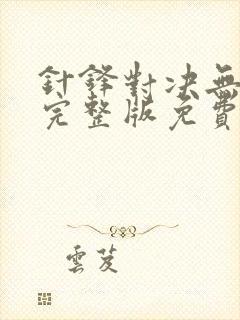 針鋒對決無
完整版免費
雲芨